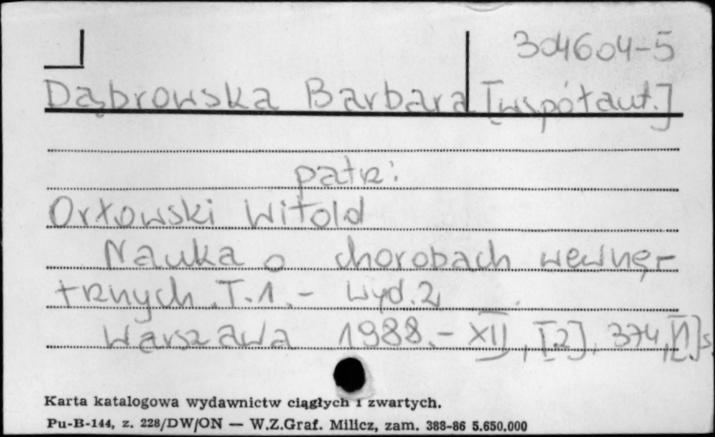 304604-5
Dąbrowska Barbara [współaut.]
patrz:
Orłowski Witold
Nauka o chorobach wewnę-
trznych. T.1.- Wyd.2
Warszawa 1988.- XII, [2], 374, [1] s
Karta katalogowa wydawnictw ciągłych i zwartych.
Pu-B-144, z. 228/DW/ON — W.Z.Graf. Milicz, zam. 388-86 5.650.000